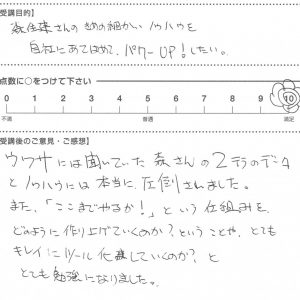 【受講目的】
森住建さんのきめの細かいノウハウを
自社にあてはめて、パワーUP!したい。
点数に○をつけて下さい
0 1 2 3 4 5 6 7 8 9 10
不満 普通 満足
【受講後のご意見・ご感想】
ウワサには聞いていた森さんの2テラのデータ
とノウハウには本当に圧倒されました。
また、「ここまでやるか!」という仕組みを
どのように作り上げていくのか?ということや、とても
キレイにルール化していくのか?と
とても勉強になりました。